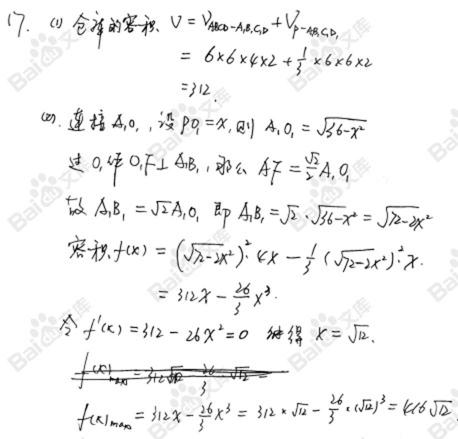 17. (1) 仓库的容积 V = V_{ABCD-A₁B₁C₁D₁} + V_{P-A₁B₁C₁D₁}
= 6×6×4×2 + \frac{1}{3}×6×6×2
= 312.
(2). 连接A₁O₁, 设PO₁=x, 则 A₁O₁ = \sqrt{36-x²}
过O₁作O₁F⊥A₁B₁, 那么 A₁F = \frac{\sqrt{2}}{2}A₁O₁
故 A₁B₁ = \sqrt{2}A₁O₁ 即 A₁B₁ = \sqrt{2}·\sqrt{36-x²} = \sqrt{72-2x²}
容积 f(x) = (\sqrt{72-2x²})²·4x - \frac{1}{3}(\sqrt{72-2x²})²·x.
= 312x - \frac{26}{3}x³.
令 f'(x) = 312 - 26x² = 0 解得 x = \sqrt{12}.
f(x)_{max} = 312x - \frac{26}{3}x³ = 312×\sqrt{12} - \frac{26}{3}×(\sqrt{12})³ = 416\sqrt{12}